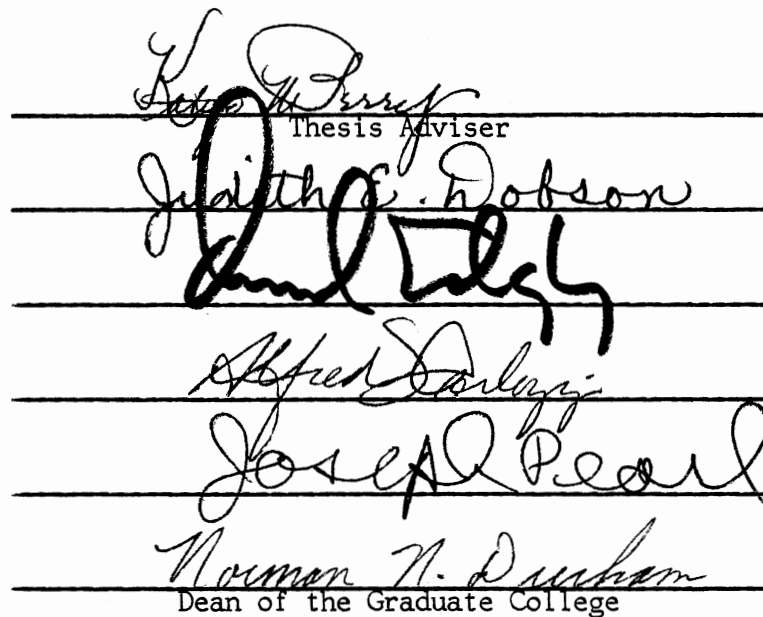 Perry
Thesis Adviser
Judith E. Dobson
Alfred Carlozzi
Joseph Pearl
Norman N. Durham
Dean of the Graduate College